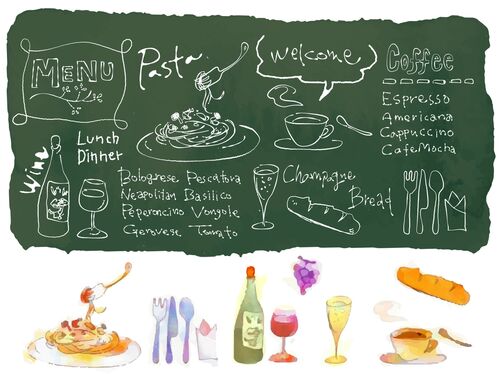 MENU
Pasta
Welcome
Coffee
Espresso
Americana
Cappuccino
CafeMocha
Wine
Lunch
Dinner
Bolognese Pescatora
Neapolitan Basilico
Peperoncino Vongole
Genovese Tomato
Champagne
Bread